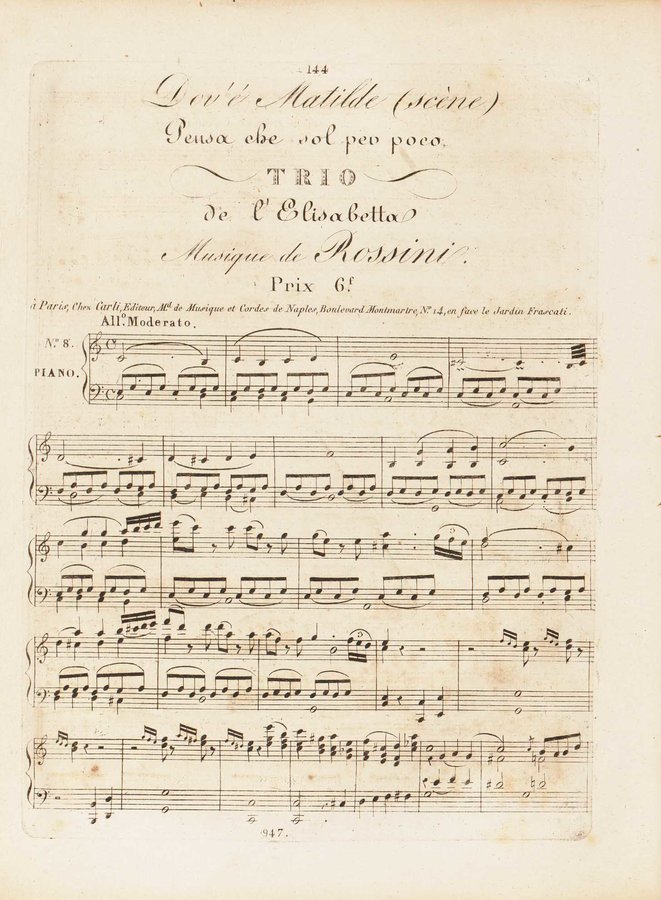 144
Dov'è Matilde (scène)
Pensa che sol per poco.
TRIO
de l'Elisabetta
Musique de Rossini.
Prix 6.f
à Paris, Chez Carli, Editeur, Md. de Musique et Cordes de Naples, Boulevard Montmartre, No. 14, en face le Jardin Frascati.
All.o Moderato.
No. 8.
PIANO.
3
3
3
947.